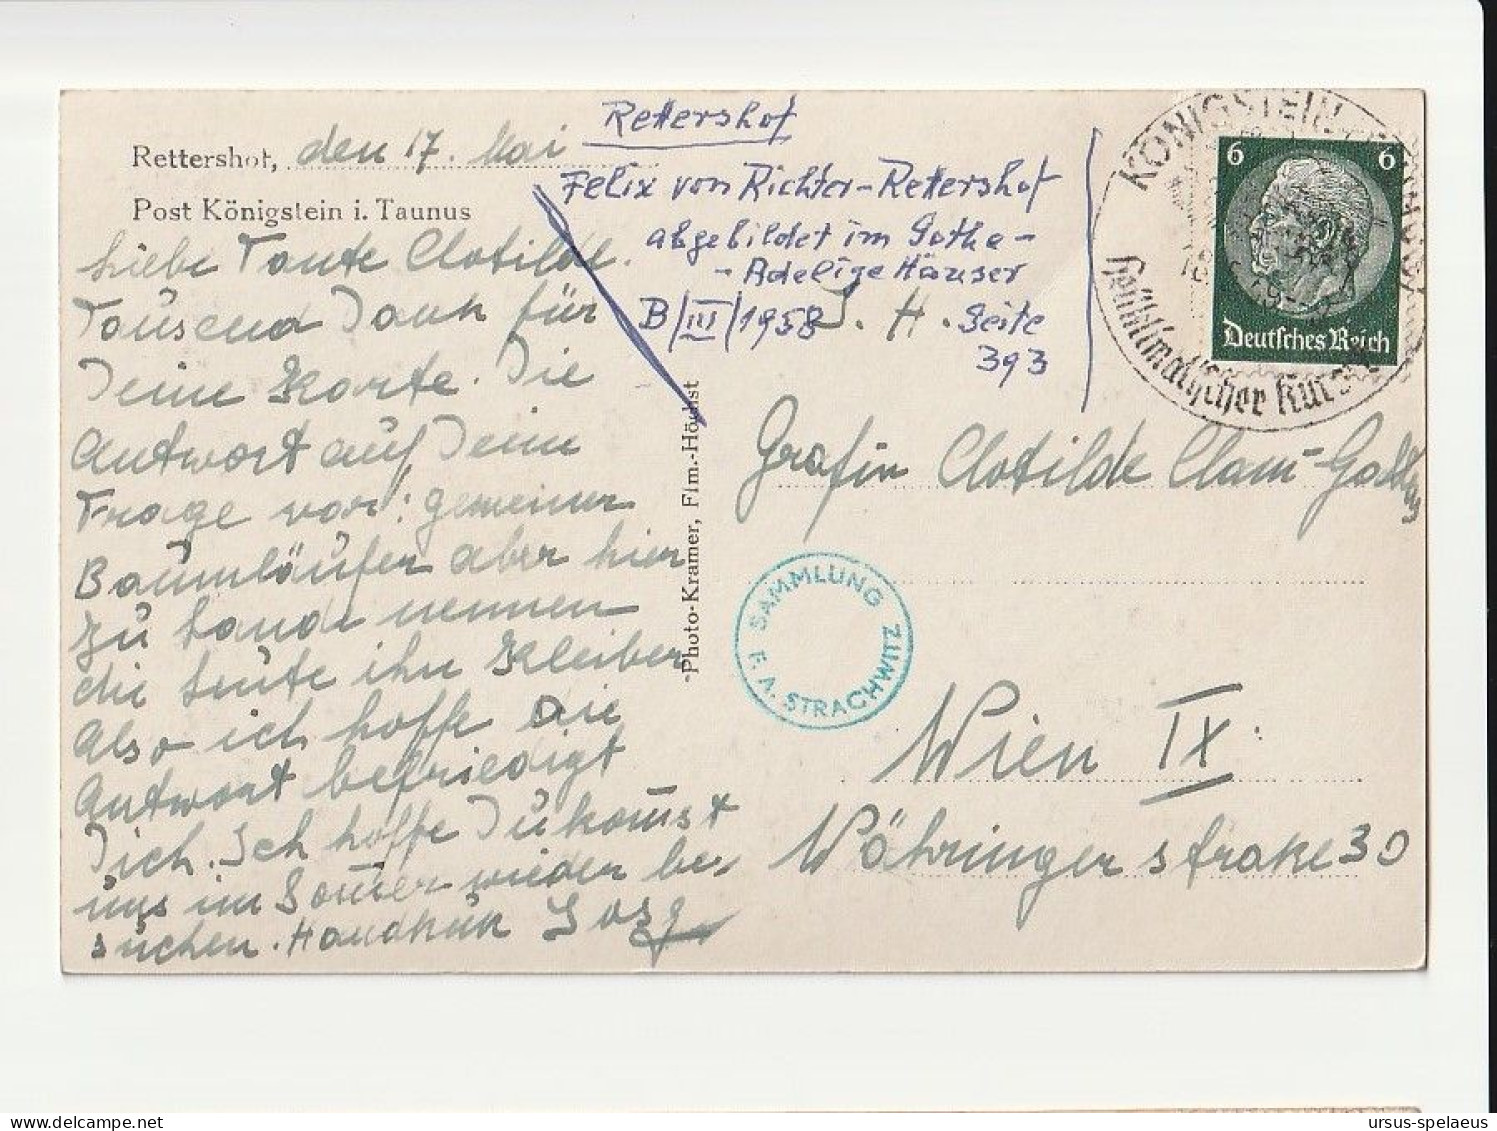 Rettershof, den 17. Mai
Post Königstein i. Taunus
Liebe Tante Clotilde.
Tausend Dank für
Deine Karte. Die
Antwort auf Deine
Frage war: gemeiner
Baumläufer aber hier
zu Lande nennen
die Leute ihn Kleiber
Also ich hoffe die
Antwort befriedigt
Dich. Ich hoffe Du kommst
uns im Sommer wieder be-
suchen. Handkuß
Rettershof
Felix von Richter-Rettershof
abgebildet im Gotha-
- Adelige Häuser
B/III/1958 Seite
393
I. H.
Photo-Kramer, Ffm.-Höchst
KÖNIGSTEIN
Heilklimatischer Kurort
6 6
Deutsches Reich
Gräfin Clotilde Clam-Gallas
SAMMLUNG
F. A. STRACHWITZ
Wien IX
Währingerstraße 30
ursus-spelaeus